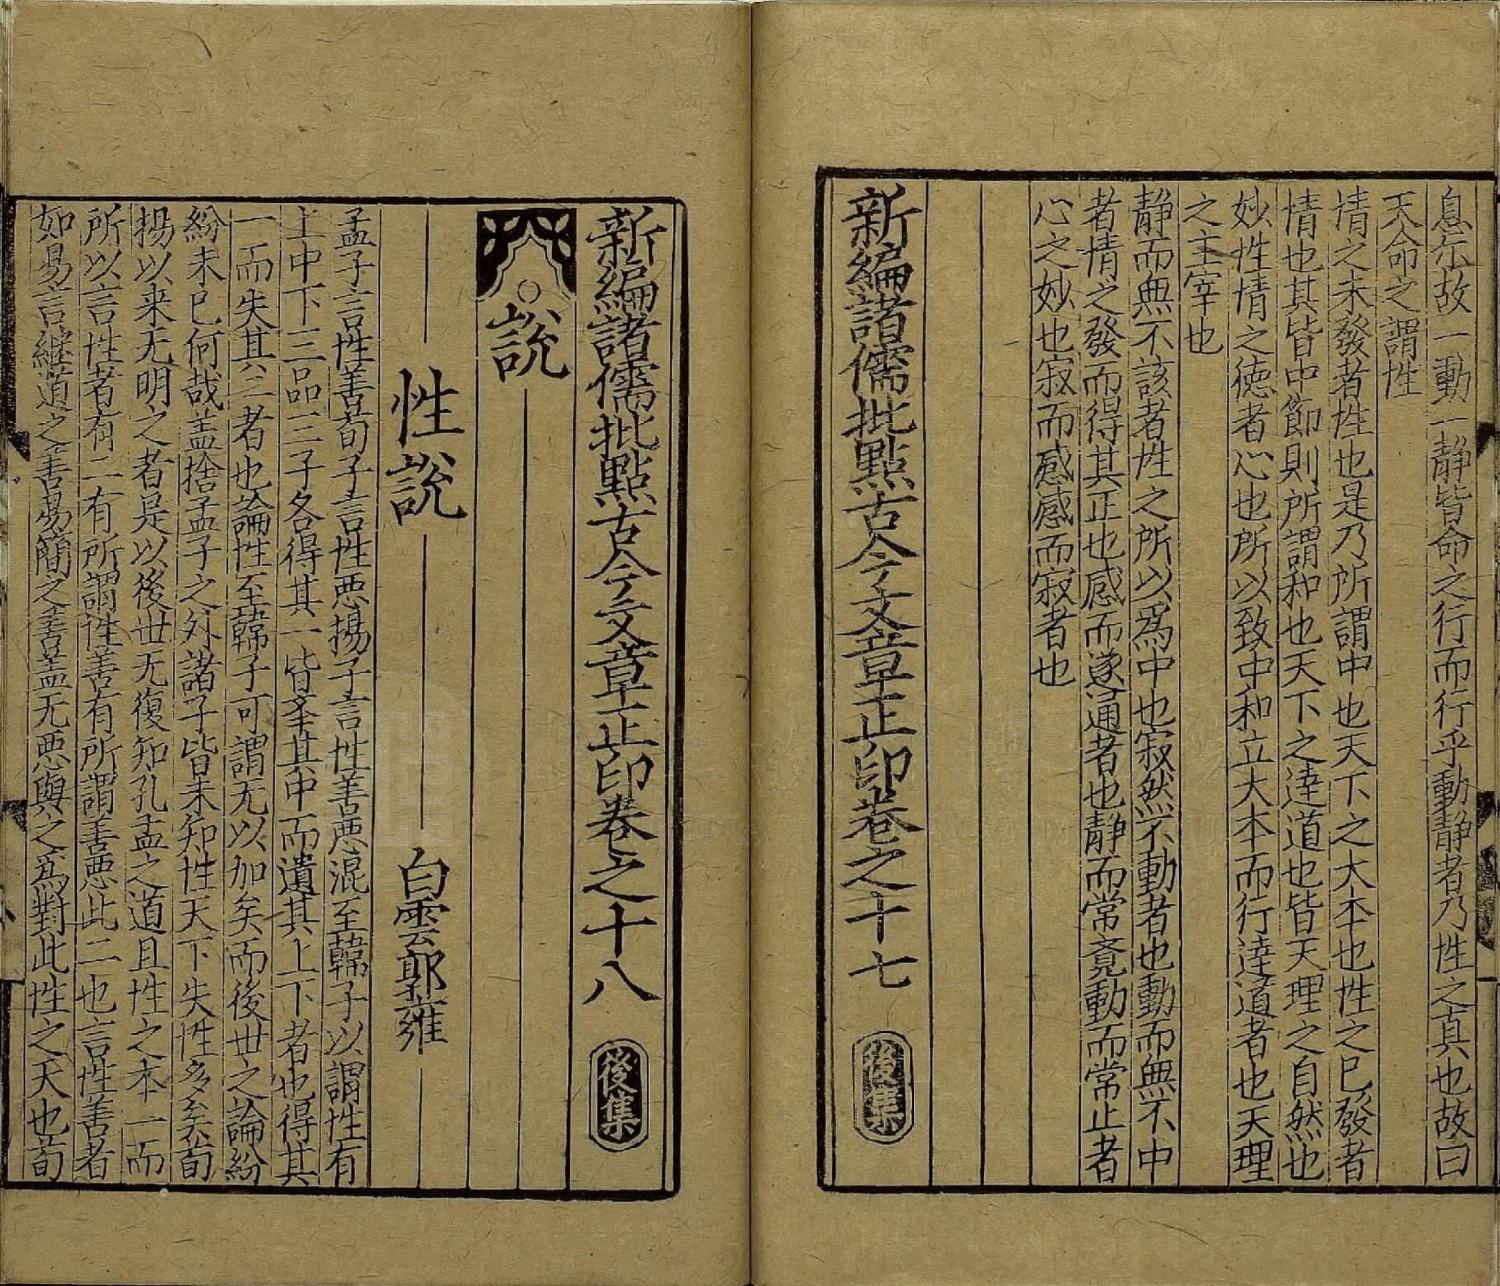 息尓故一動一静皆命之行而行乎動静者乃性之真也故曰
天命之謂性
情之未發者性也是乃所謂中也天下之大本也性之已發者
情也其皆中節則所謂和也天下之達道也皆天理之自然也
妙性情之徳者心也所以致中和立大本而行達道者也天理
之主宰也
静而無不該者性之所以爲中也寂然不動者也動而無不中
者情之發而得其正也感而遂通者也静而常覺動而常止者
心之妙也寂而感感而寂者也
新編諸儒批點古今文章正印巻之十七 後集
新編諸儒批點古今文章正印巻之十八 後集
説
性説 白雲郭雍
孟子言性善荀子言性悪揚子言性善悪混至韓子以謂性有
上中下三品三子各得其一皆举其中而遺其上下者也得其
一而失其三者也論性至韓子可謂无以加矣而後世之論紛
紛未已何哉盖捨孟子之外諸子皆未知性天下失性多矣荀
揚以来无明之者是以後世无復知孔孟之道且性之本一而
所以言性者有二有所謂性善有所謂善悪此二也言性善者
如易言継道之善易簡之善盖无悪與之爲對此性之天也荀